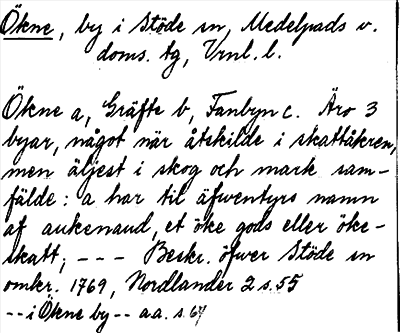 Ökne, by i Stöde sn, Medelpads v.
doms. tg, Vrnl. l.
Ökne a, Gräfte b, Fanbyn c. Äro 3
byar, något när åtskilde i skattåkren,
men äljest i skog och mark sam-
fälde: a har til äfwentyrs namn
af aukenaud, et öke gods eller öke-
skatt; --- Beskr. öfwer Stöde sn
omkr. 1769, Nordlander 2 s. 55
-- i Ökne by -- a.a. s. 64